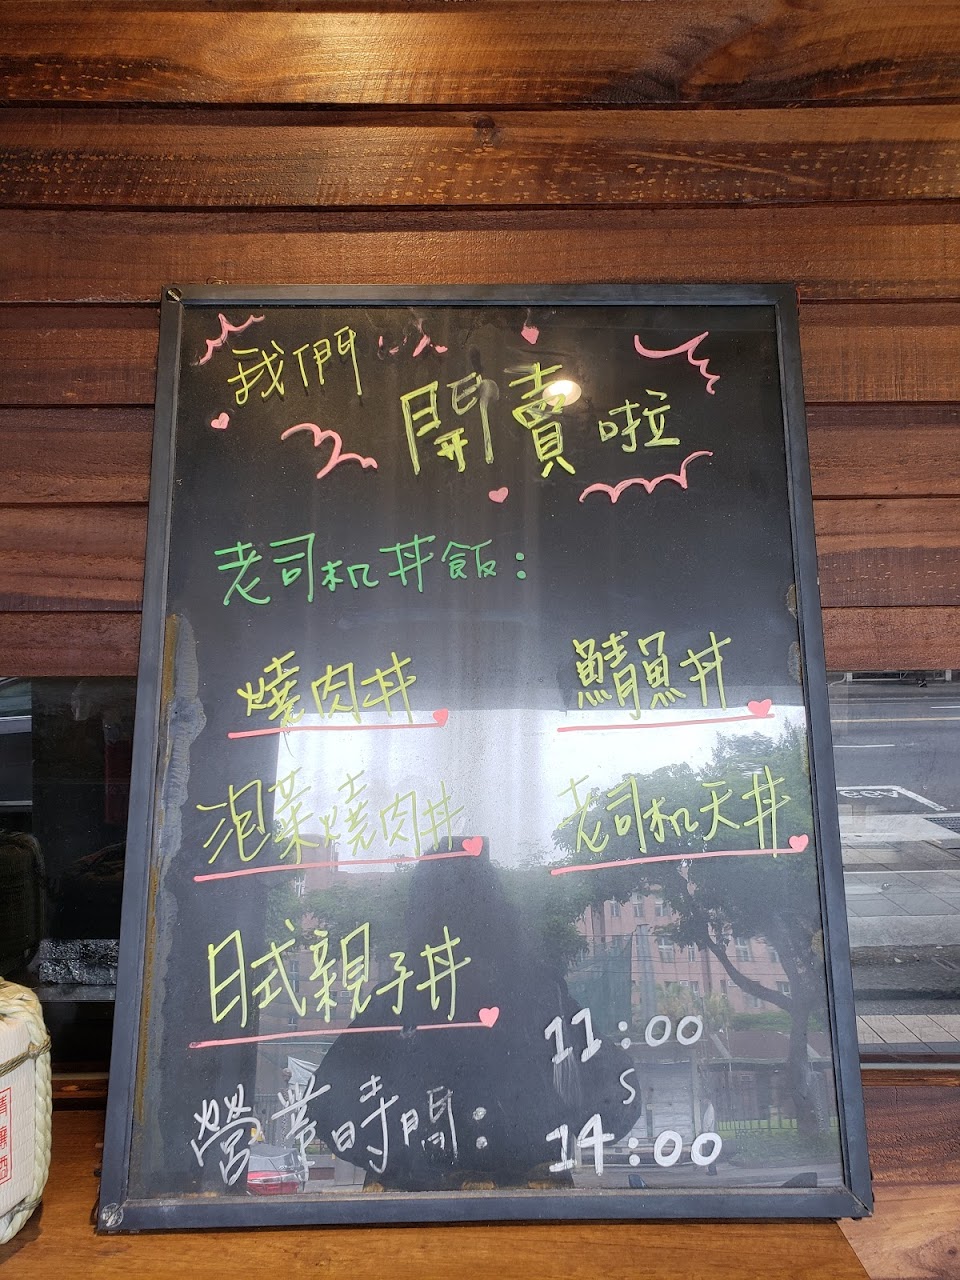 我們
開賣啦
老司机丼飯：
燒肉丼
鯖魚丼
泡菜燒肉丼
老司机天丼
日式親子丼
營業時間：
11:00
S
14:00